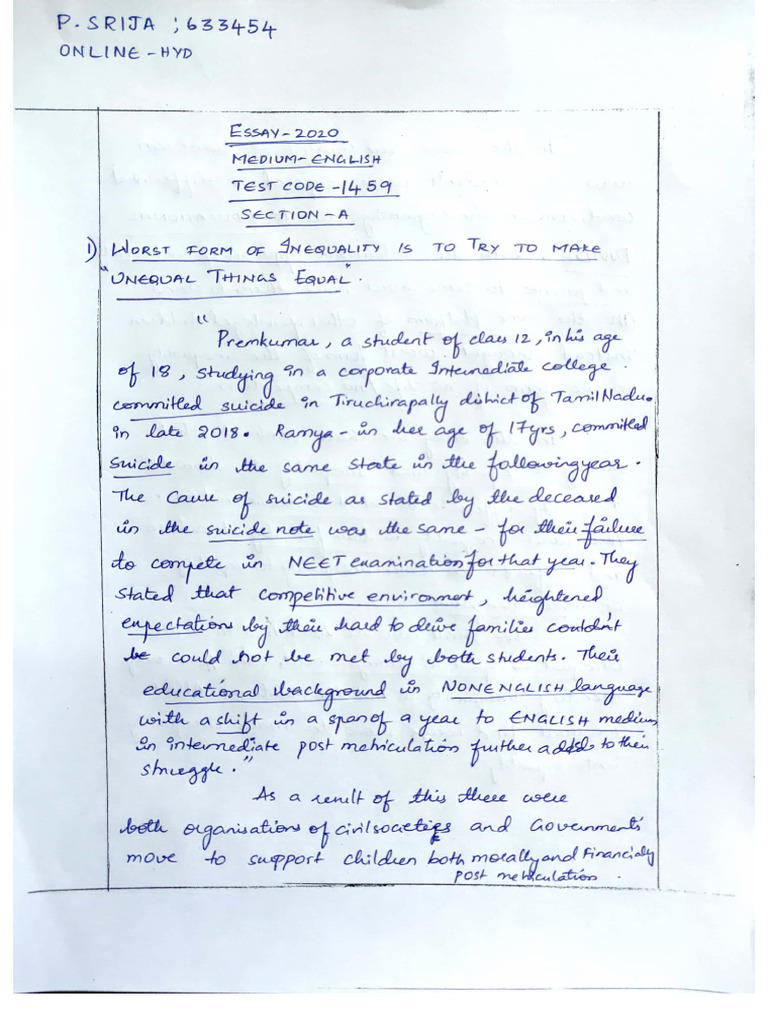 P. SRIJA ; 633454
ONLINE - HYD
ESSAY - 2020
MEDIUM - ENGLISH
TEST CODE - 1459
SECTION - A
1) WORST FORM OF INEQUALITY IS TO TRY TO MAKE
"UNEQUAL THINGS EQUAL".
"
Premkumar, a student of class 12, in his age
of 18, studying in a corporate Intermediate college
committed suicide in Tiruchirapally district of Tamil Nadu.
in late 2018. Ramya - in her age of 17yrs, committed
suicide in the same state in the following year.
The cause of suicide as stated by the deceased
in the suicide note was the same - for their failure
to compete in NEET examination for that year. They
stated that competitive environment, heightened
expectations by their hard to drive families couldn't
be could not be met by both students. Their
educational background in NONENGLISH language
with a shift in a span of a year to ENGLISH medium
in intermediate post metriculation further adds to their
struggle."
As a result of this there were
both organisations of civil societies and Governments'
move to support children both morally and Financialy
post metriculation .